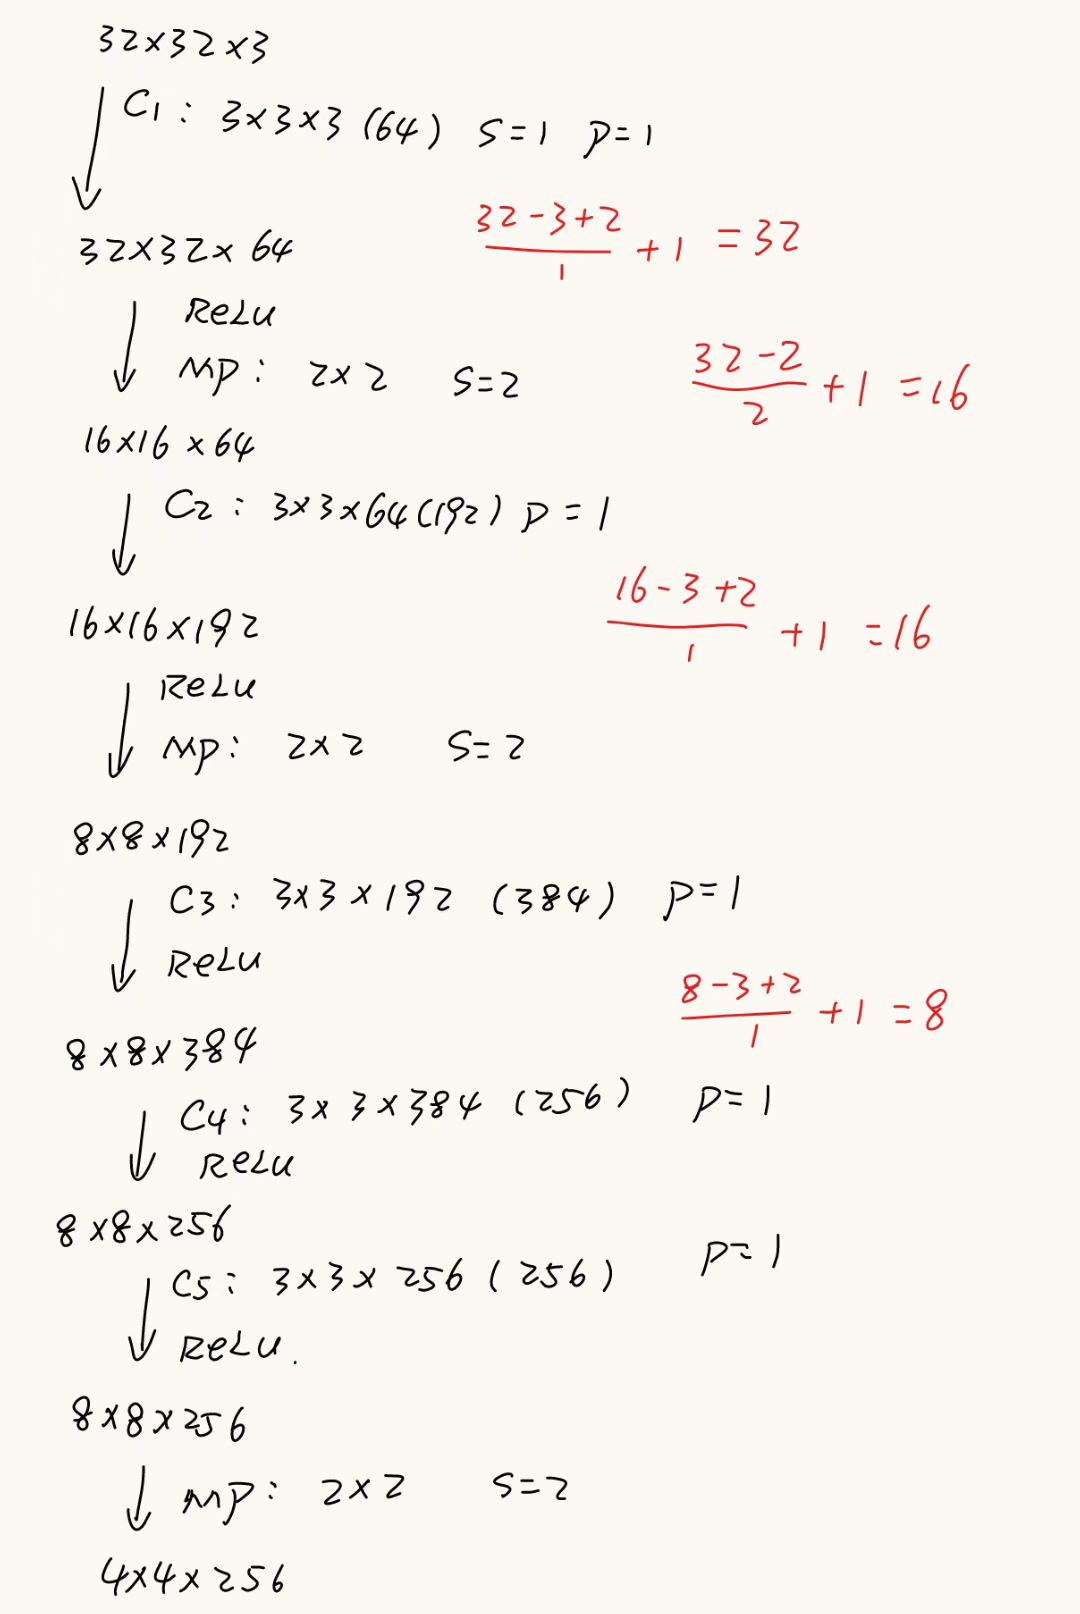 32×32×3
C1: 3×3×3 (64) S=1 p=1
32×32×64
(32-3+2)/1 + 1 = 32
ReLu
MP: 2×2 S=2
(32-2)/2 + 1 = 16
16×16×64
C2: 3×3×64(192) p=1
16×16×192
(16-3+2)/1 + 1 = 16
ReLu
MP: 2×2 S=2
8×8×192
C3: 3×3×192 (384) p=1
ReLu
(8-3+2)/1 + 1 = 8
8×8×384
C4: 3×3×384 (256) p=1
ReLu
8×8×256
C5: 3×3×256 (256) p=1
ReLu.
8×8×256
MP: 2×2 S=2
4×4×256